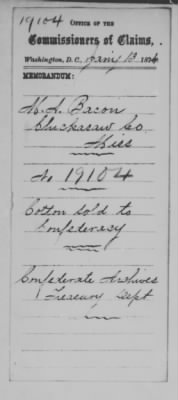 19104
OFFICE OF THE
Commissioners of Claims,
Washington, D.C., Jany 13 1874
MEMORANDUM:
M. A. Bacon
Chickasaw Co
Miss
No 19104
Cotton sold to
Confederacy
Confederate Archives
Treasury Dept